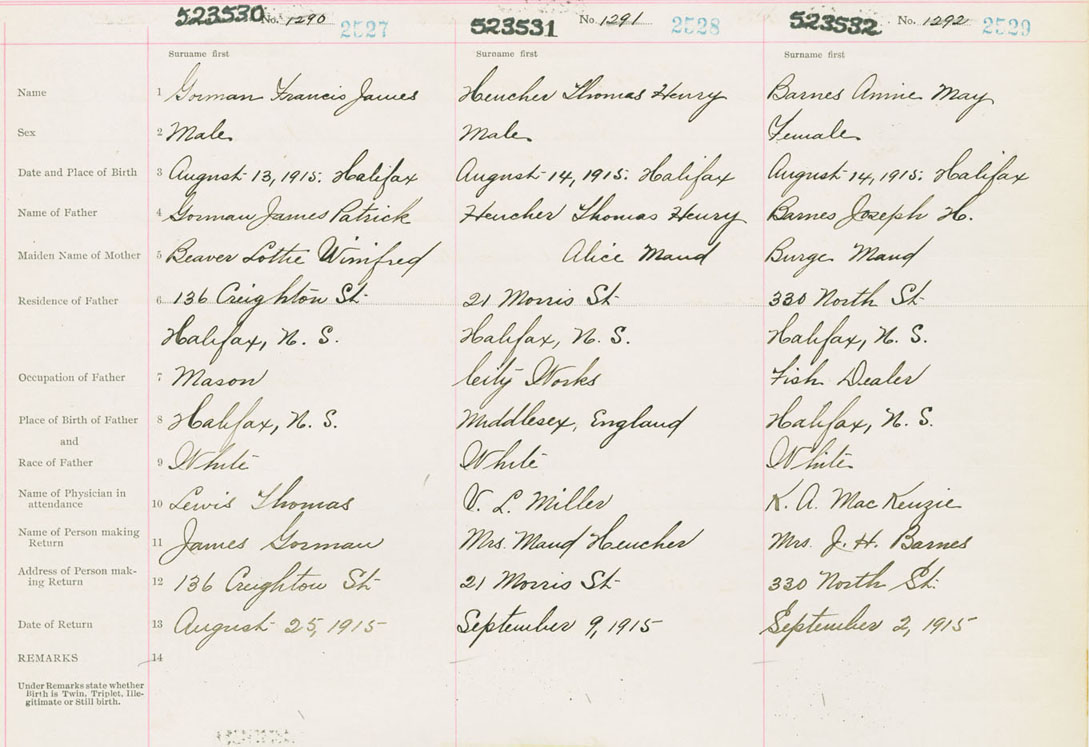 523530 No. 1290 2527 523531 No. 1291 2528 523532 No. 1292 2529
Surname first Surname first Surname first
Name 1 Gorman Francis James Heucher Thomas Henry Barnes Annie May
Sex 2 Male Male Female
Date and Place of Birth 3 August 13, 1915. Halifax August 14, 1915. Halifax August 14, 1915. Halifax
Name of Father 4 Gorman James Patrick Heucher Thomas Henry Barnes Joseph H.
Maiden Name of Mother 5 Beaver Lottie Winifred Alice Maud Burge Maud
Residence of Father 6 136 Creighton St. 21 Morris St. 330 North St.
Halifax, N. S. Halifax, N. S. Halifax, N. S.
Occupation of Father 7 Mason City Works Fish Dealer
Place of Birth of Father 8 Halifax, N. S. Middlesex, England Halifax, N. S.
and
Race of Father 9 White White White
Name of Physician in attendance 10 Lewis Thomas V. L. Miller K. A. MacKenzie
Name of Person making Return 11 James Gorman Mrs. Maud Heucher Mrs. J. H. Barnes
Address of Person mak-ing Return 12 136 Creighton St. 21 Morris St. 330 North St.
Date of Return 13 August 25, 1915 September 9, 1915 September 2, 1915
REMARKS 14
Under Remarks state whether
Birth is Twin, Triplet, Ille-
gitimate or Still birth.